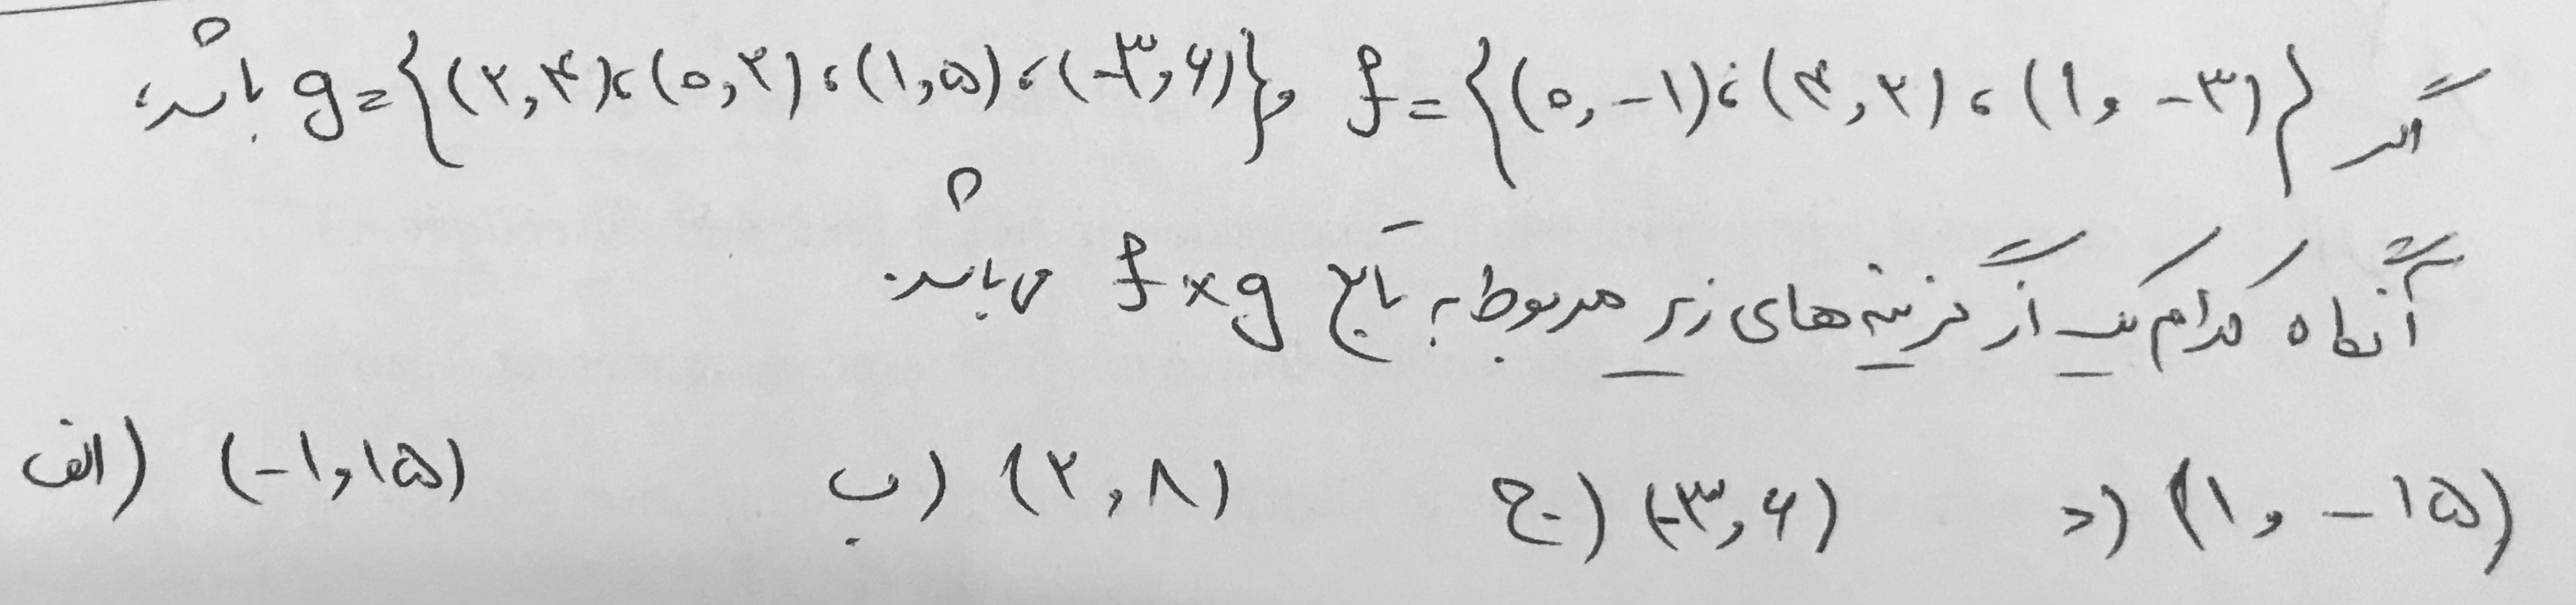 اگر f = {(۰, -۱)، (۴, ۲)، (۱, -۳)} و g = {(۲, ۴)، (۰, ۲)، (۱, ۵)، (-۳, ۶)} باشد،
آنگاه کدام یک از گزینه‌های زیر مربوط به تابع f×g می‌باشد.
الف) (-۱, ۱۵) ب) (۲, ۸) ج) (-۳, ۶) د) (۱, -۱۵)